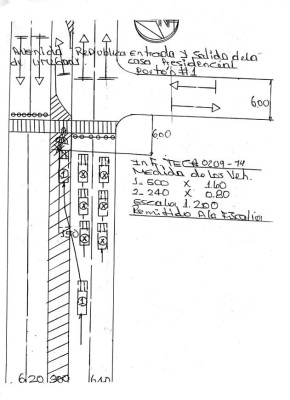 Avenida Republica
de Uruguay
Entrada y Salida de la
casa Presidencial
Porton #1
600
600
Inf. TECA 0209-14
Medida de los Veh.
1- 500 X 160
2- 240 X 0.80
Escala 1.200
Remitido A la Fiscalia
150
620 300 640